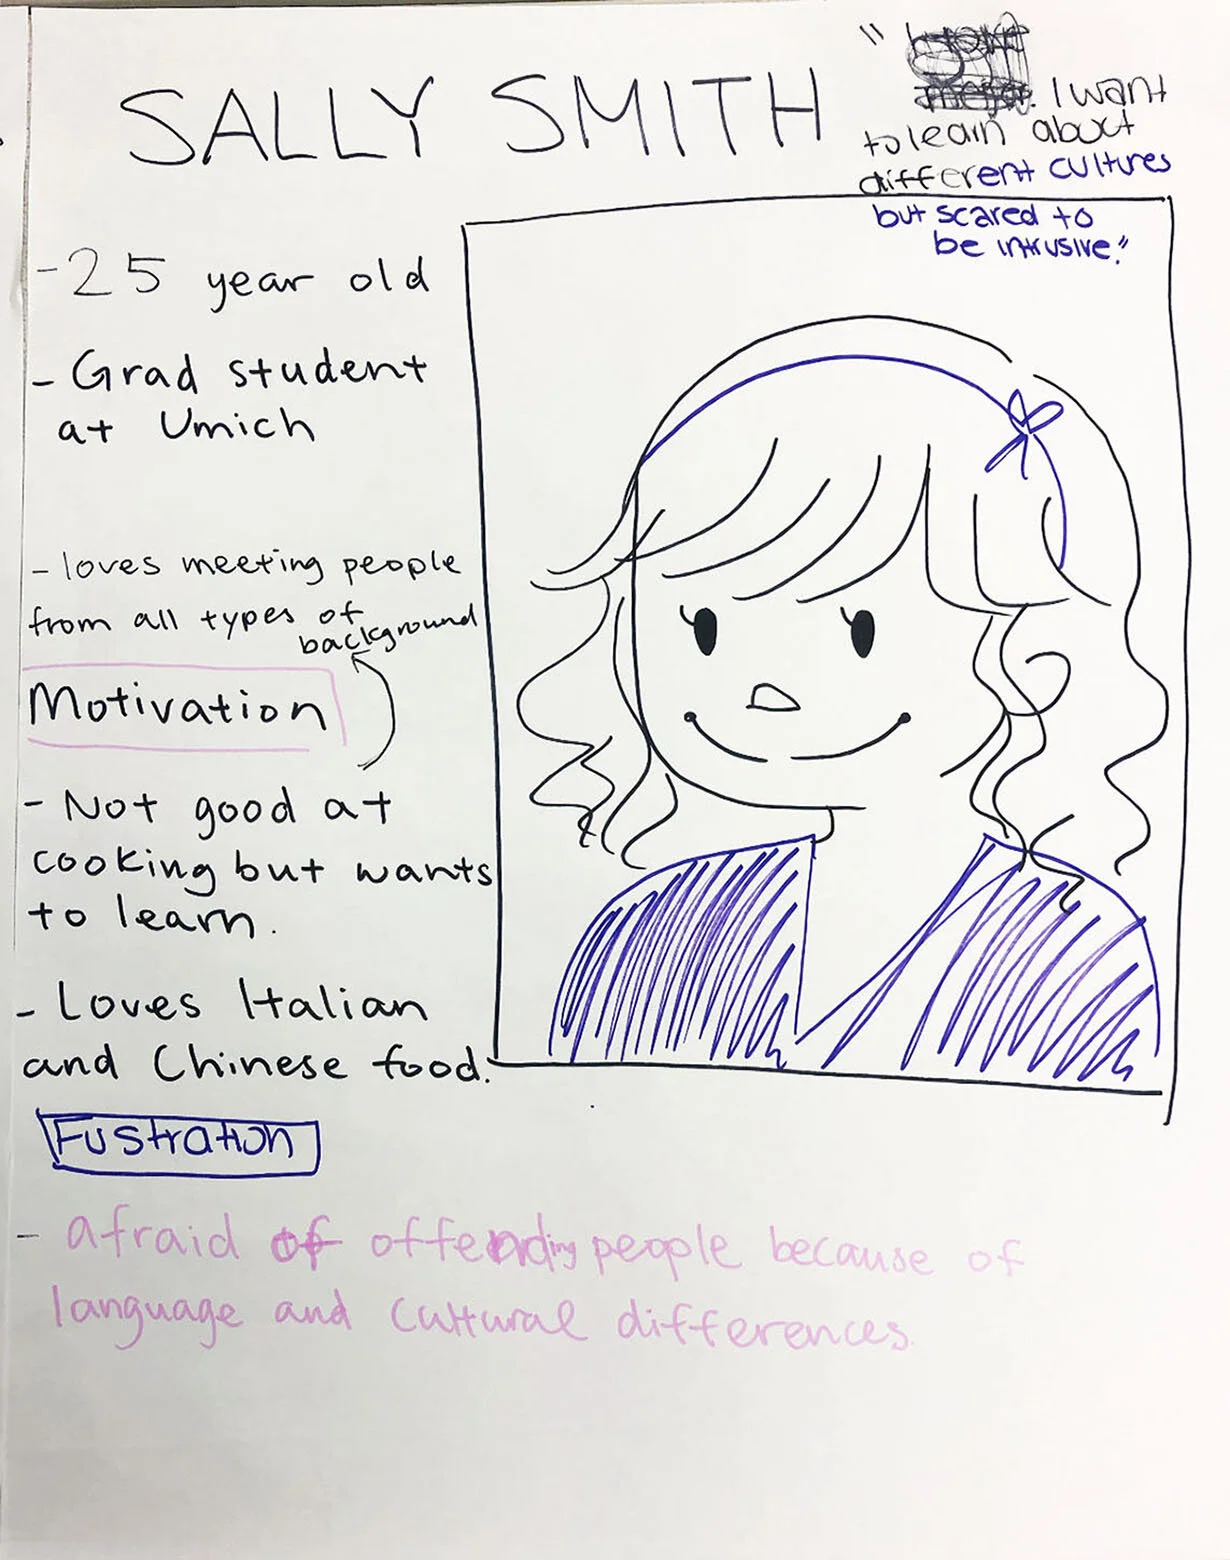 SALLY SMITH
" I want
to learn about
different cultures
but scared to
be intrusive."
- 25 year old
- Grad student
at Umich
- loves meeting people
from all types of
background
Motivation
- Not good at
cooking but wants
to learn.
- Loves Italian
and Chinese food.
Fustration
- afraid of offending people because of
language and cultural differences.